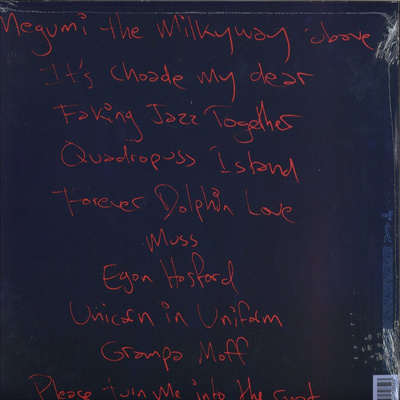 Megumi the Milkyway above
It's Choade my dear
Faking Jazz Together
Quadropuss Island
Forever Dolphin Love
Muss
Egon Hosford
Unicorn in Uniform
Grampa Moff
Please turn me into the